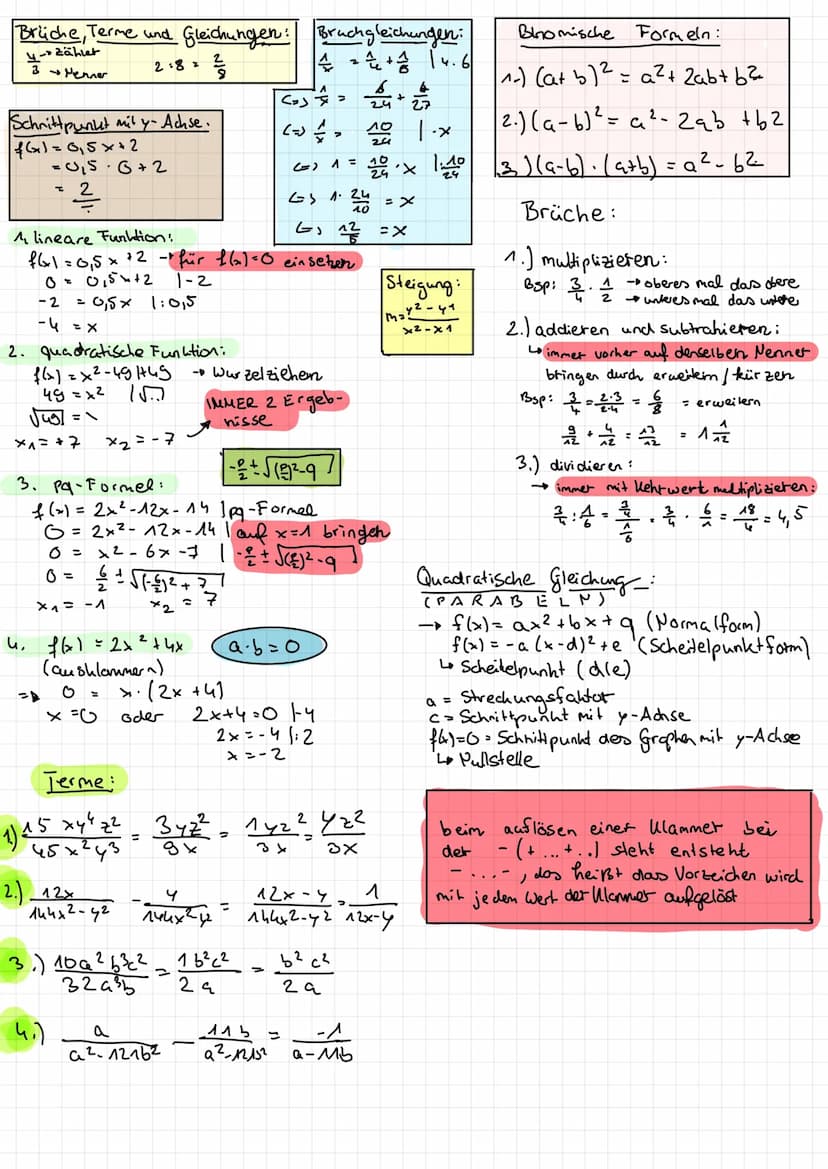 Brüche, Terme und Gleichungen:
4/3 → Zähler
→ Nenner
2:8 = 2/8
Schnittpunkt mit y-Achse.
f(x) = 0,5x+2
= 0,5 · 0 + 2
= 2
Bruchgleichungen:
1/x = 1/4 + 1/6 | 4·6
<=> 1/x = 6/24 + 4/24
<=> 1/x = 10/24 | ·x
<=> 1 = 10/24 · x | : 10/24
<=> 1 · 24/10 = x
<=> 12/5 = x
Binomische Formeln:
1.) (a+b)² = a² + 2ab + b²
2.) (a-b)² = a² - 2ab + b2
3.) (a-b) · (a+b) = a² - b²
1. lineare Funktion:
f(x) = 0,5x+2 → für f(x)=0 einsetzen
0 = 0,5x+2 |-2
-2 = 0,5x |:0,5
-4 = x
2. quadratische Funktion:
f(x) = x² - 49 |+49 → Wurzelziehen
49 = x² |√..
√49 = x
x1 = +7 x2 = -7
IMMER 2 Ergeb-
nisse
Steigung:
m = y2-y1/x2-x1
-p/2 ± √(p/2)²-q
3. pq-Formel:
f(x) = 2x² - 12x - 14 | pq-Formel
0 = 2x² - 12x - 14 | auf x=1 bringen
0 = x² - 6x - 7 | -p/2 ± √(p/2)²-q
0 = 6/2 ± √(-6/2)² + 7
x1 = -1 x2 = 7
4. f(x) = 2x² + 4x
a·b=0
(ausklammern)
=> 0 = x·(2x+4)
x = 0 oder 2x+4=0 |-4
2x = -4 |:2
x = -2
Brüche:
1.) multiplizieren:
Bsp: 3/4 · 1/2 → oberes mal das obere
→ unteres mal das untere
2.) addieren und subtrahieren:
↳ immer vorher auf denselben Nenner
bringen durch erweitern / kürzen
Bsp: 3/4 = 2·3/2·4 = 6/8 = erweitern
9/12 + 4/12 = 13/12 = 1 1/12
3.) dividieren:
→ immer mit Kehrwert multiplizieren:
3/4 : 1/6 = 3/4/1/6 = 3/4 · 6/1 = 18/4 = 4,5
Quadratische Gleichung:
(PARABELN)
→ f(x) = ax² + bx + q (Normalform)
f(x) = -a (x-d)² + e (Scheitelpunktform)
↳ Scheitelpunkt (d/e)
a = Streckungsfaktor
c = Schnittpunkt mit y-Achse
f(x)=0 = Schnittpunkt des Graphen mit y-Achse
↳ Nullstelle
Terme:
1) 15xy⁴z²/45x²y³ = 3yz²/9x = 1yz²/3x = yz²/3x
2.) 12x/144x²-y² - y/144x²-y² = 12x-y/144x²-y² = 1/12x-y
3.) 10a²b³c²/32a³b = 1b²c²/2a = b²c²/2a
4.) a/a²-121b² - 11b/a²-121b² = -1/a-11b
beim auflösen einer Klammer bei
der -(+...+..) steht entsteht
-...-, das heißt das Vorzeichen wird
mit jedem Wert der Klammer aufgelöst